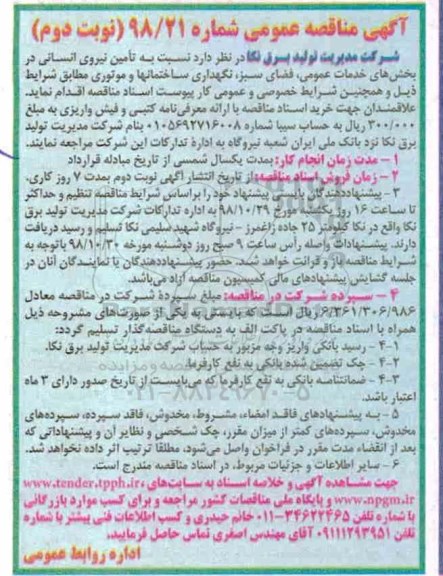 آگهی مناقصه عمومی شماره ۹۸/۲۱ (نوبت دوم)
شرکت مدیریت تولید برق نکا در نظر دارد نسبت به تأمین نیروی انسانی در
بخش‌های خدمات عمومی، فضای سبز، نگهداری ساختمانها و موتوری مطابق شرایط
ذیل و همچنین شرایط خصوصی و عمومی کار پیوست اسناد مناقصه اقدام نماید.
علاقمندان جهت خرید اسناد مناقصه با ارائه معرفی‌نامه کتبی و فیش واریزی به مبلغ
۳۰۰/۰۰۰ ریال به حساب سیبا شماره ۰۱۰۵۶۹۲۷۱۶۰۰۸ بنام شرکت مدیریت تولید
برق نکا نزد بانک ملی ایران شعبه نیروگاه به ادارهٔ تدارکات این شرکت مراجعه نمایند.
۱ – مدت زمان انجام کار: بمدت یکسال شمسی از تاریخ مبادله قرارداد
۲ – زمان فروش اسناد مناقصه: از تاریخ انتشار آگهی نوبت دوم بمدت ۷ روز کاری.
۳ – پیشنهاددهندگان بایستی پیشنهاد خود را براساس شرایط مناقصه تنظیم و حداکثر
تا ساعت ۱۶ روز یکشنبه مورخ ۹۸/۱۰/۲۹ به اداره تدارکات شرکت مدیریت تولید برق
نکا واقع در نکا کیلومتر ۲۵ جاده زاغمرز – نیروگاه شهید سلیمی نکا تسلیم و رسید دریافت
دارند. پیشنهادات واصله رأس ساعت ۹ صبح روز دوشنبه مورخه ۹۸/۱۰/۳۰ باتوجه به
شرایط مناقصه باز و قرائت خواهد شد. حضور پیشنهاددهندگان یا نمایندگان آنان در
جلسه گشایش پیشنهادهای مالی کمیسیون مناقصه آزاد می‌باشد.
۴ – سپرده شرکت در مناقصه: مبلغ سپردهٔ شرکت در مناقصه معادل
۶/۳۶۱/۳۰۶/۹۸۶ ریال است که بایستی به یکی از صورت‌های مشروحه ذیل
همراه با اسناد مناقصه در پاکت الف به دستگاه مناقصه‌گذار تسلیم گردد:
۴-۱ – رسید بانکی واریز وجه مزبور به حساب شرکت مدیریت تولید برق نکا.
۴-۲ – چک تضمین شده بانکی به نفع کارفرما.
۴-۳ – ضمانتنامه بانکی به نفع کارفرما که می‌بایست از تاریخ صدور دارای ۳ ماه
اعتبار باشد.
۵ – به پیشنهادهای فاقد امضاء، مشروط، مخدوش، فاقد سپرده، سپرده‌های
مخدوش، سپرده‌های کمتر از میزان مقرر، چک شخصی و نظایر آن و پیشنهاداتی که
بعد از انقضاء مدت مقرر در فراخوان واصل می‌شود، مطلقا ترتیب اثر داده نخواهد شد.
۶ – سایر اطلاعات و جزئیات مربوط، در اسناد مناقصه مندرج است.
جهت مشاهده آگهی و خلاصه اسناد به سایت‌های www.tender.tpph.ir،
www.npgm.ir و پایگاه ملی مناقصات کشور مراجعه و برای کسب موارد بازرگانی
با شماره تلفن ۳۴۶۲۲۴۶۵-۰۱۱ خانم حیدری و کسب اطلاعات فنی بیشتر با شماره
تلفن ۰۹۱۱۱۲۹۳۹۵۱ آقای مهندس اصغری تماس حاصل فرمایید.
اداره روابط عمومی